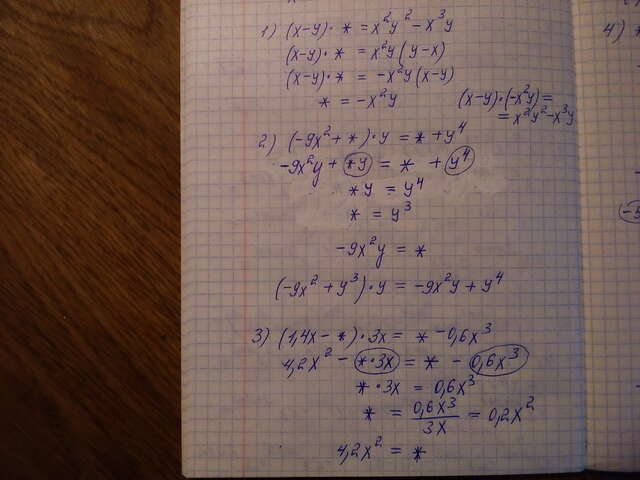 1) (x-y)·* = x²y² - x³y
(x-y)·* = x²y(y-x)
(x-y)·* = -x²y(x-y)
* = -x²y
(x-y)·(-x²y) =
= x²y² - x³y
2) (-9x² + *)·y = * + y⁴
-9x²y + *y = * + y⁴
*y = y⁴
* = y³
-9x²y = *
(-9x² + y³)·y = -9x²y + y⁴
3) (1,4x - *)·3x = * - 0,6x³
4,2x² - *·3x = * - 0,6x³
*·3x = 0,6x³
* = 0,6x³/3x = 0,2x²
4,2x² = *
4)